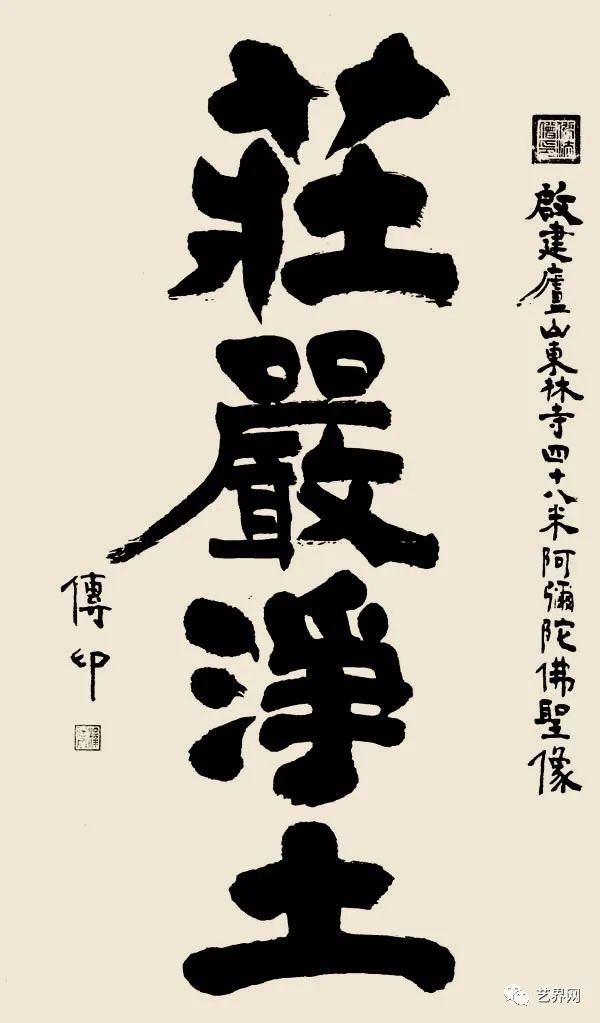 啟建廬山東林寺四十八米阿彌陀佛聖像
莊嚴淨土
傳印
艺界网